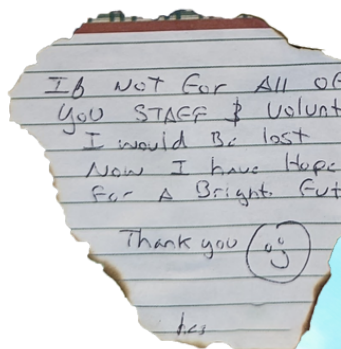 If Not For All of
you STAFF & Volunt
I would Be lost
Now I have Hope
For A Bright Fut
Thank you